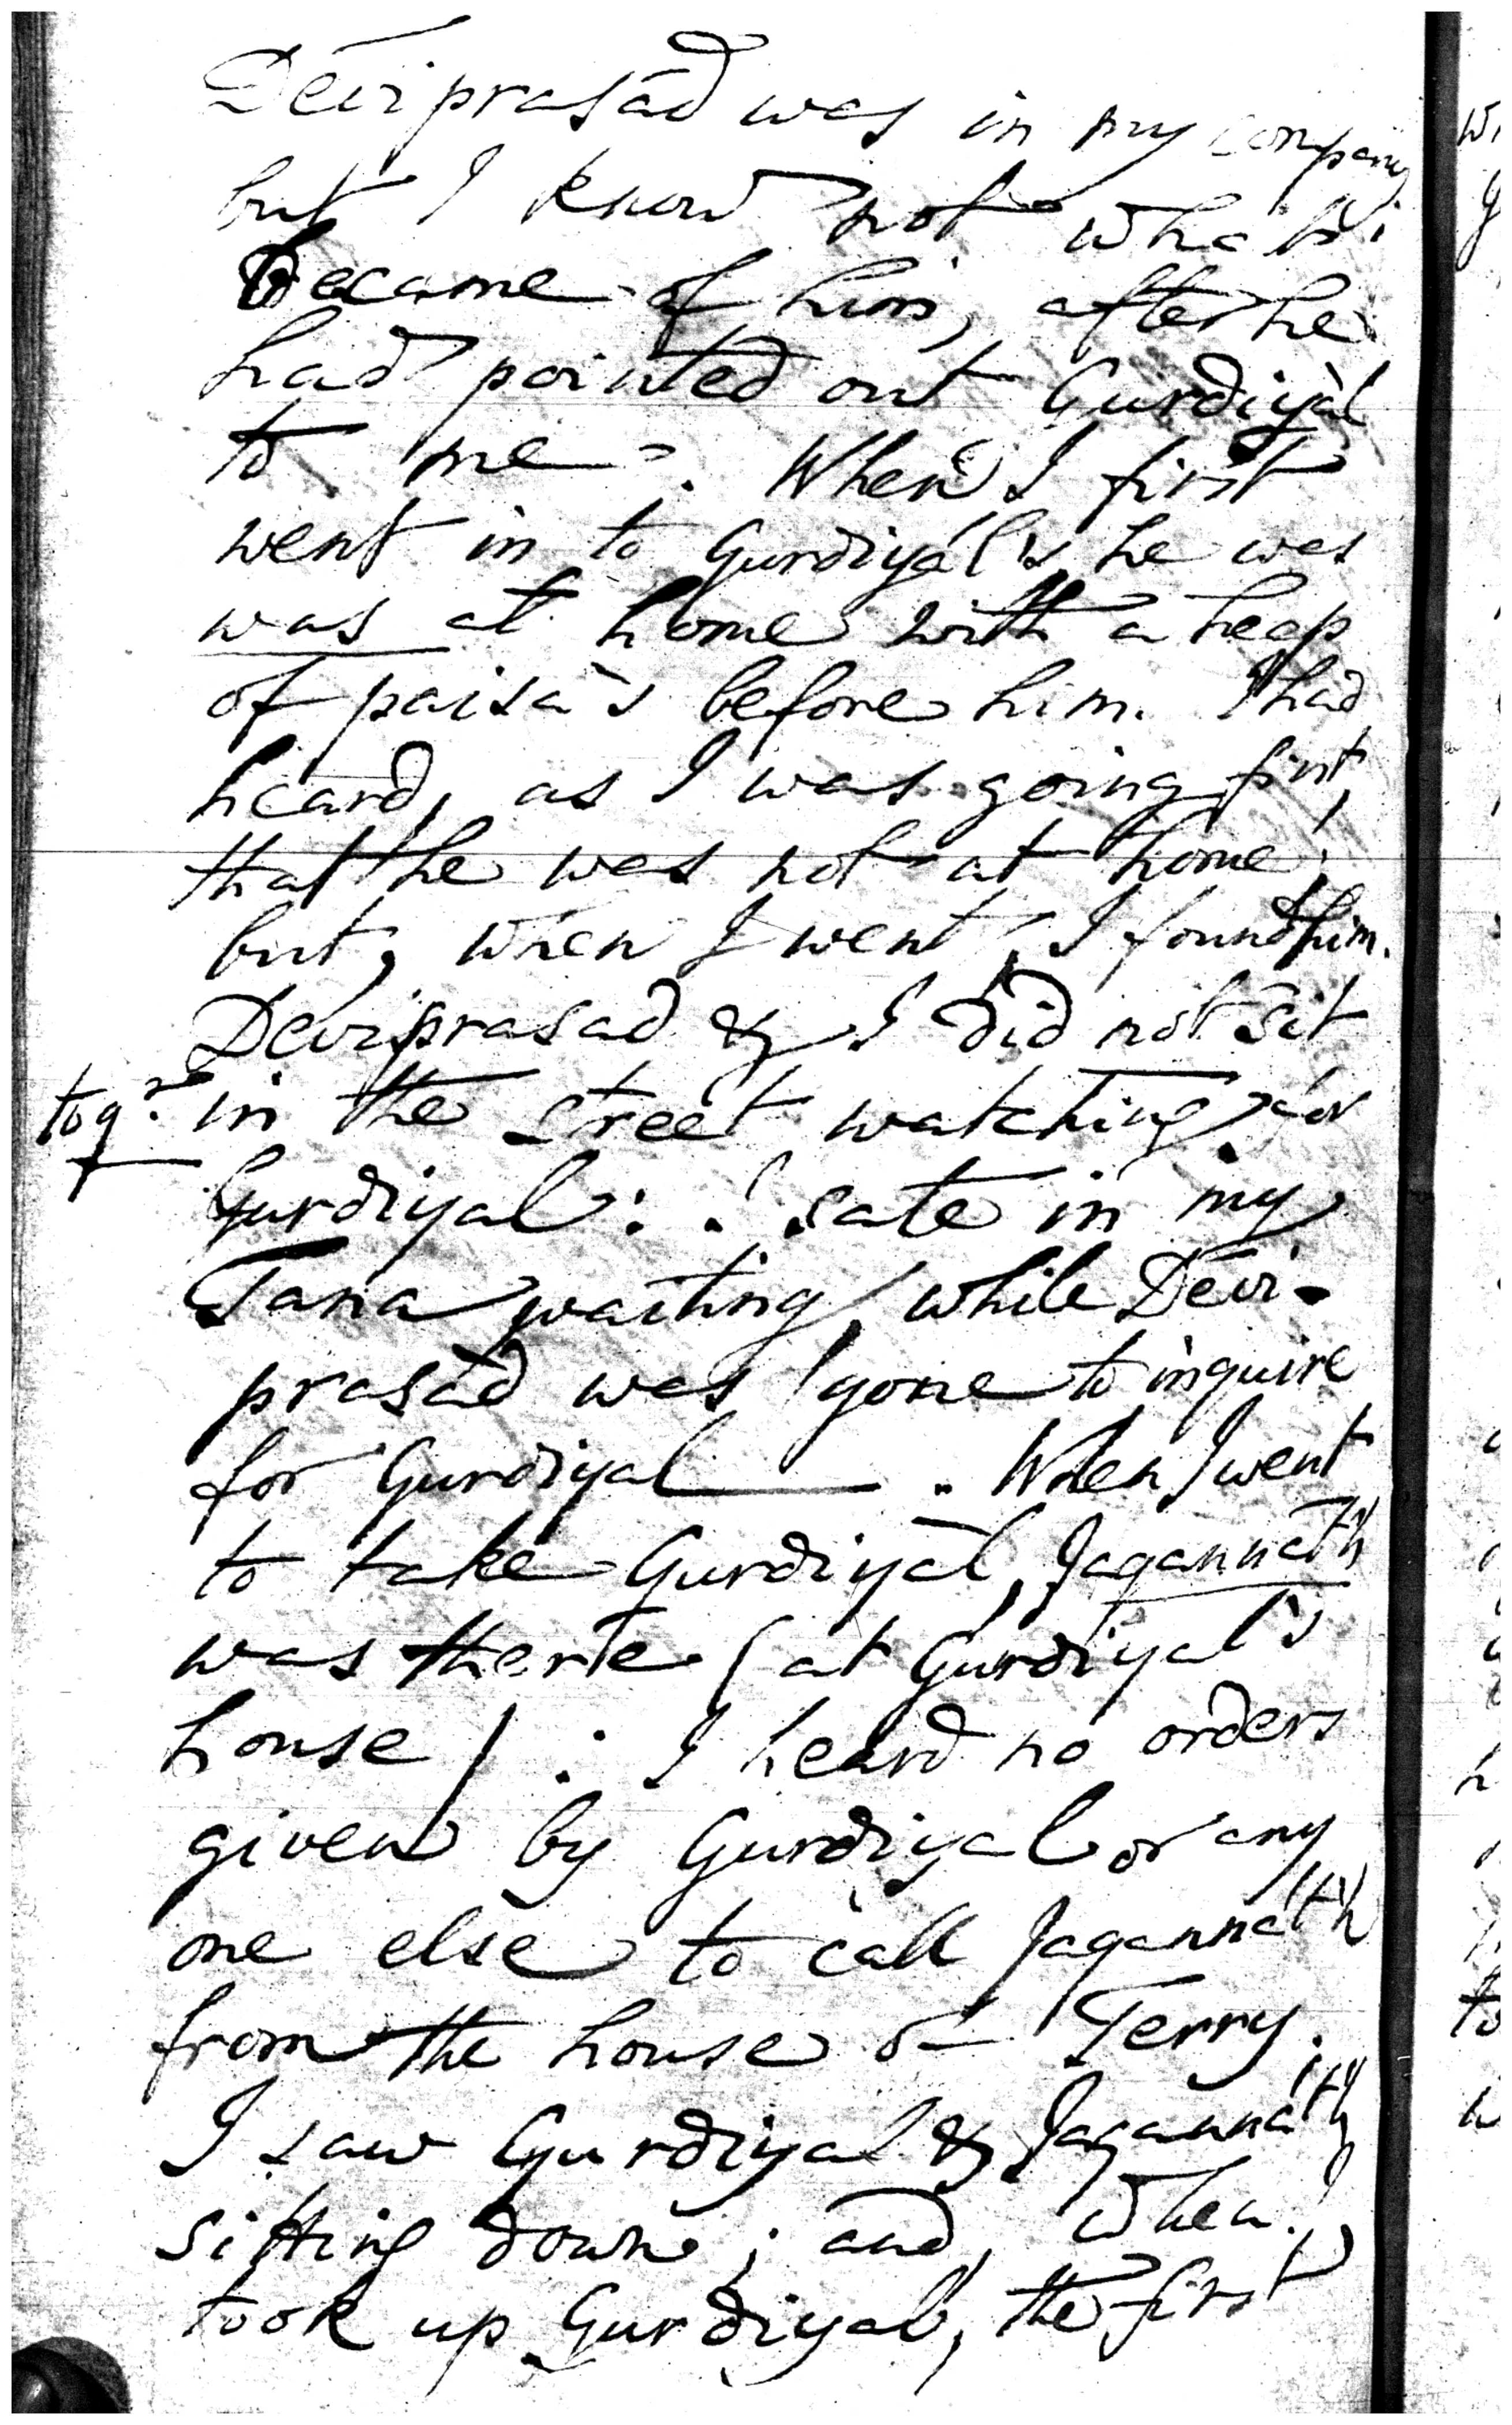 Deviprasád was in my company
but I know not what
became of him, after he
had pointed out Gurdiyál
to me. When I first
went in to Gurdiyál's he was
was at home with a heap
of paisa's before him. I had
heard, as I was going first,
that he was not at home;
but, when I went, I found him.
Deviprasad & I did not sit
togr. in the street watching for
Gurdiyal: I sate in my
Tana waiting, while Dévi-
prasád was gone to inquire
for Gurdiyal. When I went
to take Gurdiyál, Jagannáth
was there (at Gurdiyal's
house): I heard no orders
given by Gurdiyal or any
one else to call Jagannáth
from the house of Terry.
I saw Gurdiyal & Jagannáth
sitting down; and, when I
took up Gurdiyal, the first